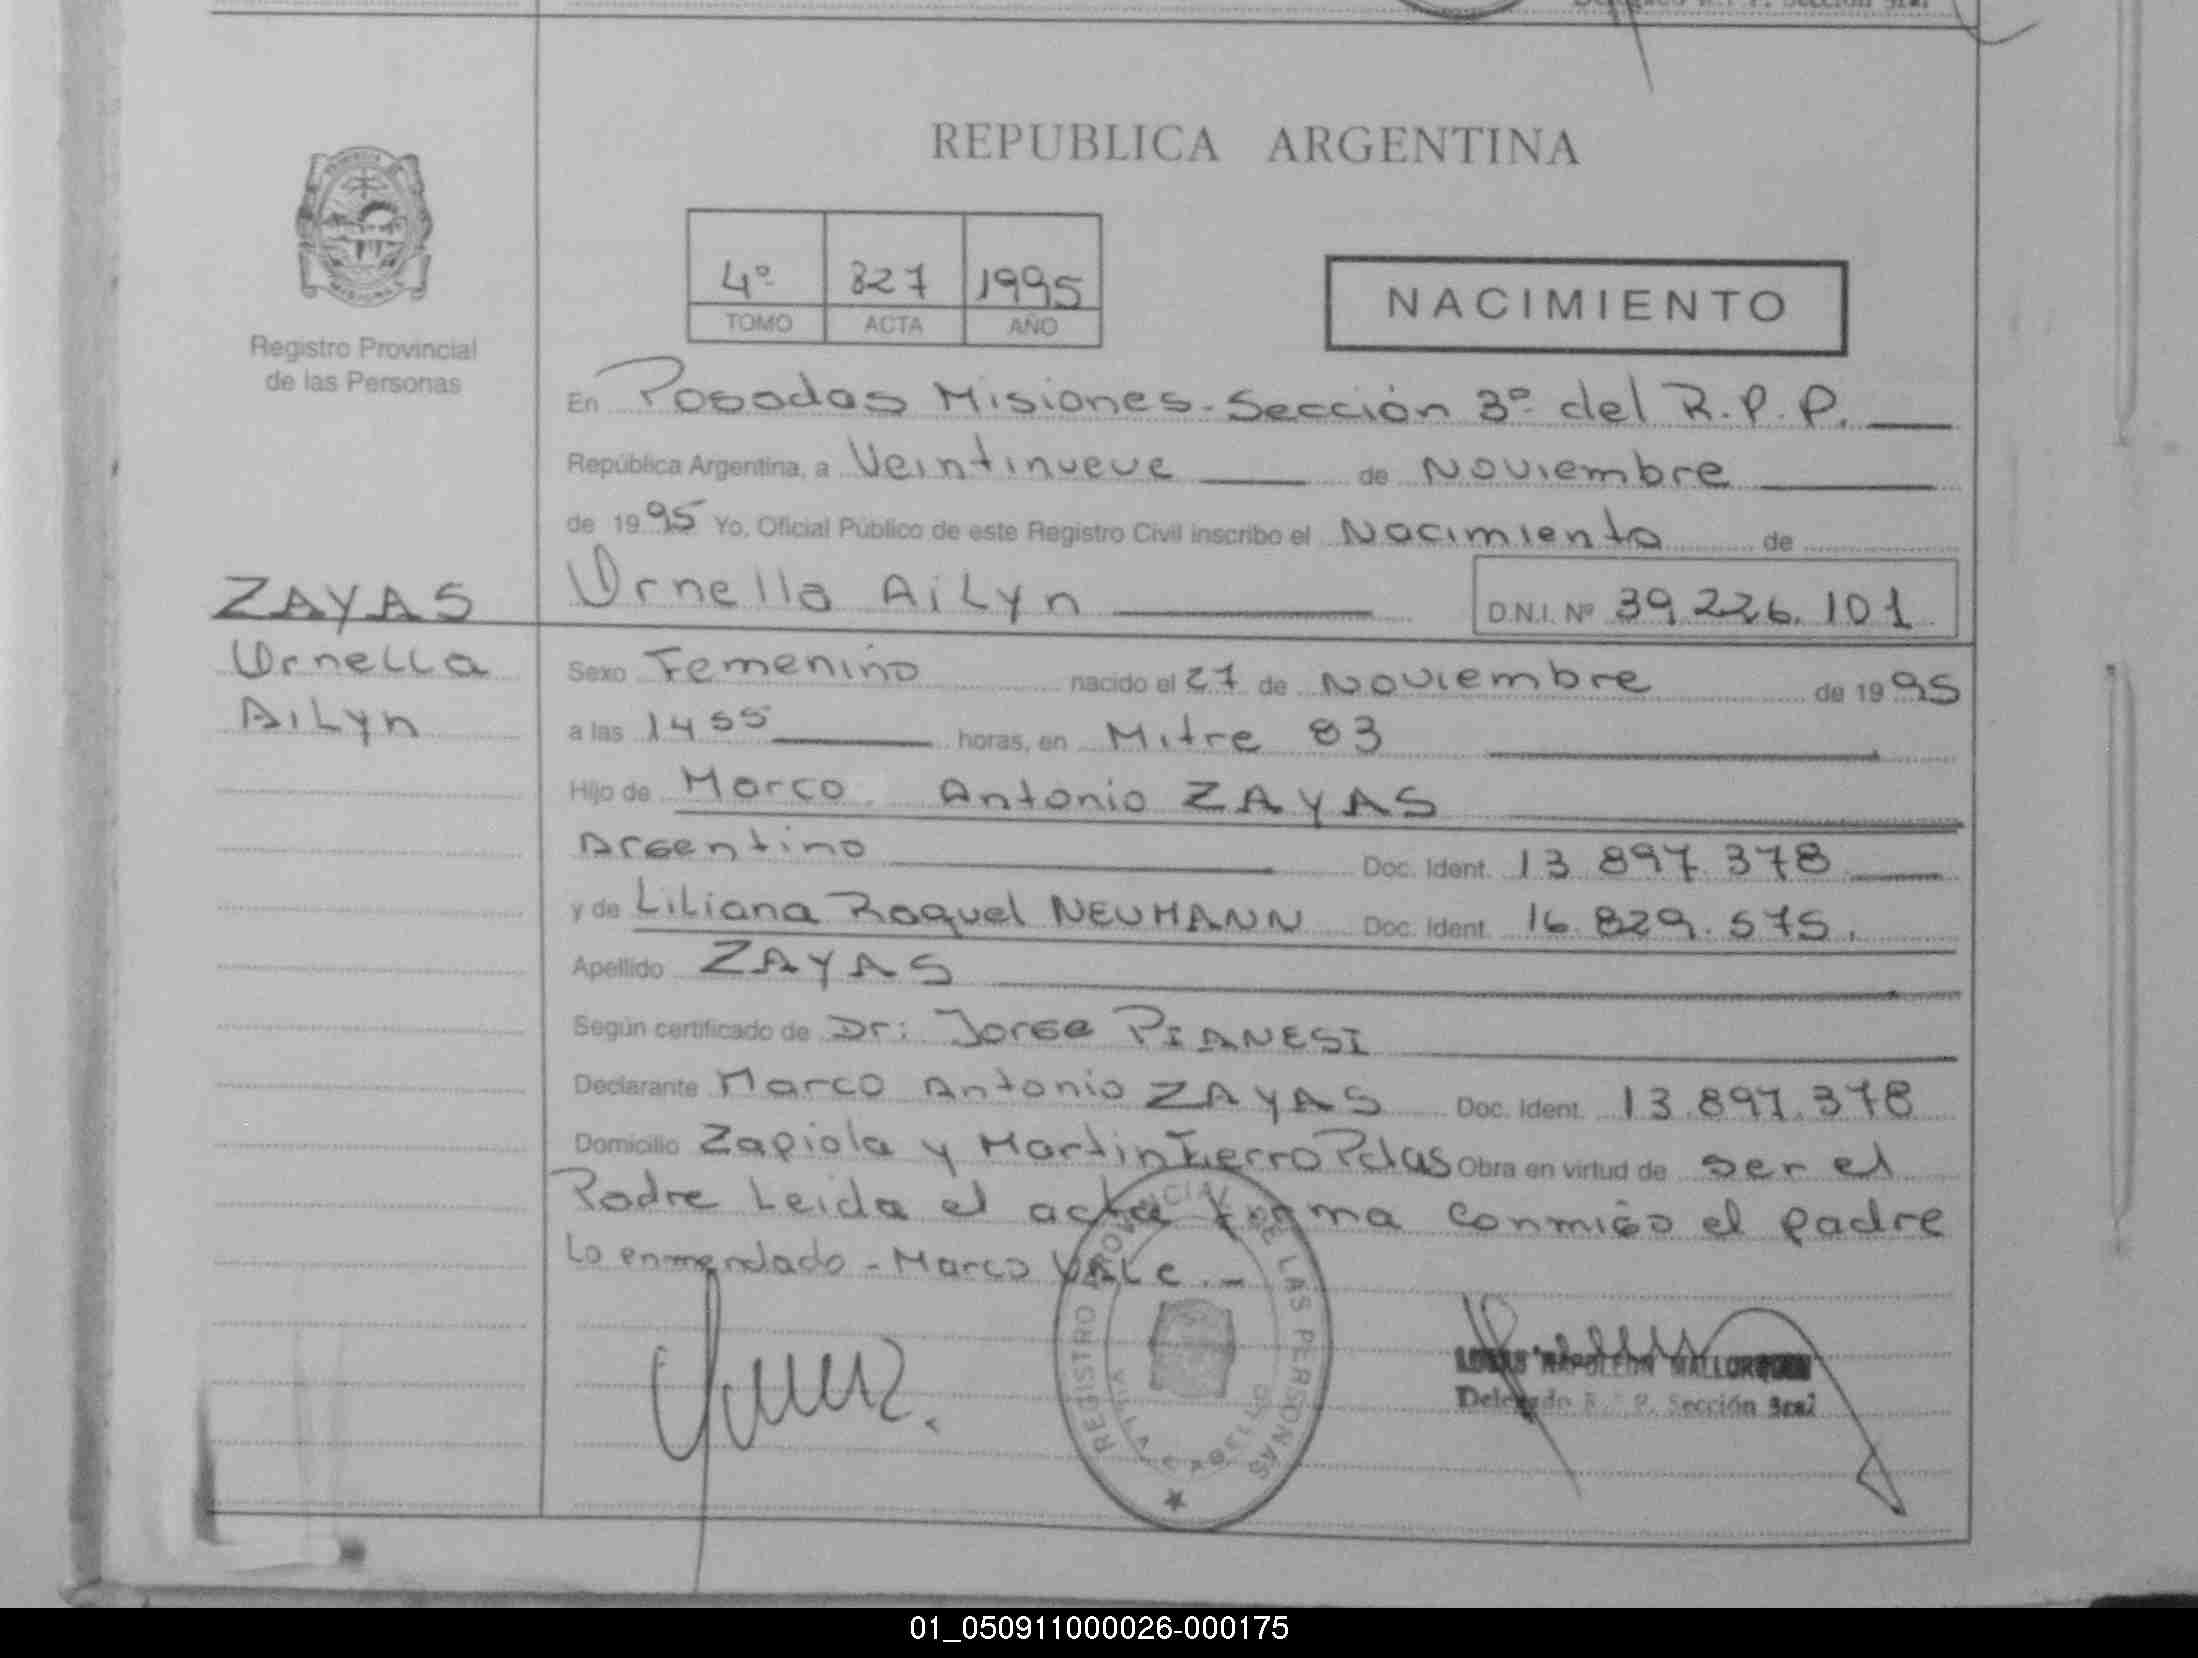 REPUBLICA ARGENTINA
Registro Provincial
de las Personas
4º 827 1995
TOMO ACTA AÑO
NACIMIENTO
En Posadas Misiones - Sección 3º del R.P.P.
República Argentina, a Veintinueve de Noviembre
de 1995 Yo, Oficial Público de este Registro Civil inscribo el Nacimiento de
ZAYAS
Urnella
AiLyn
Urnella AiLyn D.N.I. Nº 39.226.101
Sexo Femenino nacido el 27 de Noviembre de 1995
a las 1455 horas, en Mitre 83
Hijo de Marco Antonio ZAYAS
Argentino Doc. Ident. 13.897.378
y de Liliana Raquel NEUMANN Doc. Ident. 16.829.575.
Apellido ZAYAS
Según certificado de Dr: Jorge PIANESI
Declarante Marco Antonio ZAYAS Doc. Ident. 13.897.378
Domicilio Zapiola y Martin Fierro Pdas Obra en virtud de ser el
Padre Leida el acta firma conmigo el padre
Lo enmendado - Marco VALE. -
REGISTRO PROVINCIAL DE LAS PERSONAS
VILLA CABELLO
NAPOLEON
Delegado R. P. Sección 3ra
01_050911000026-000175